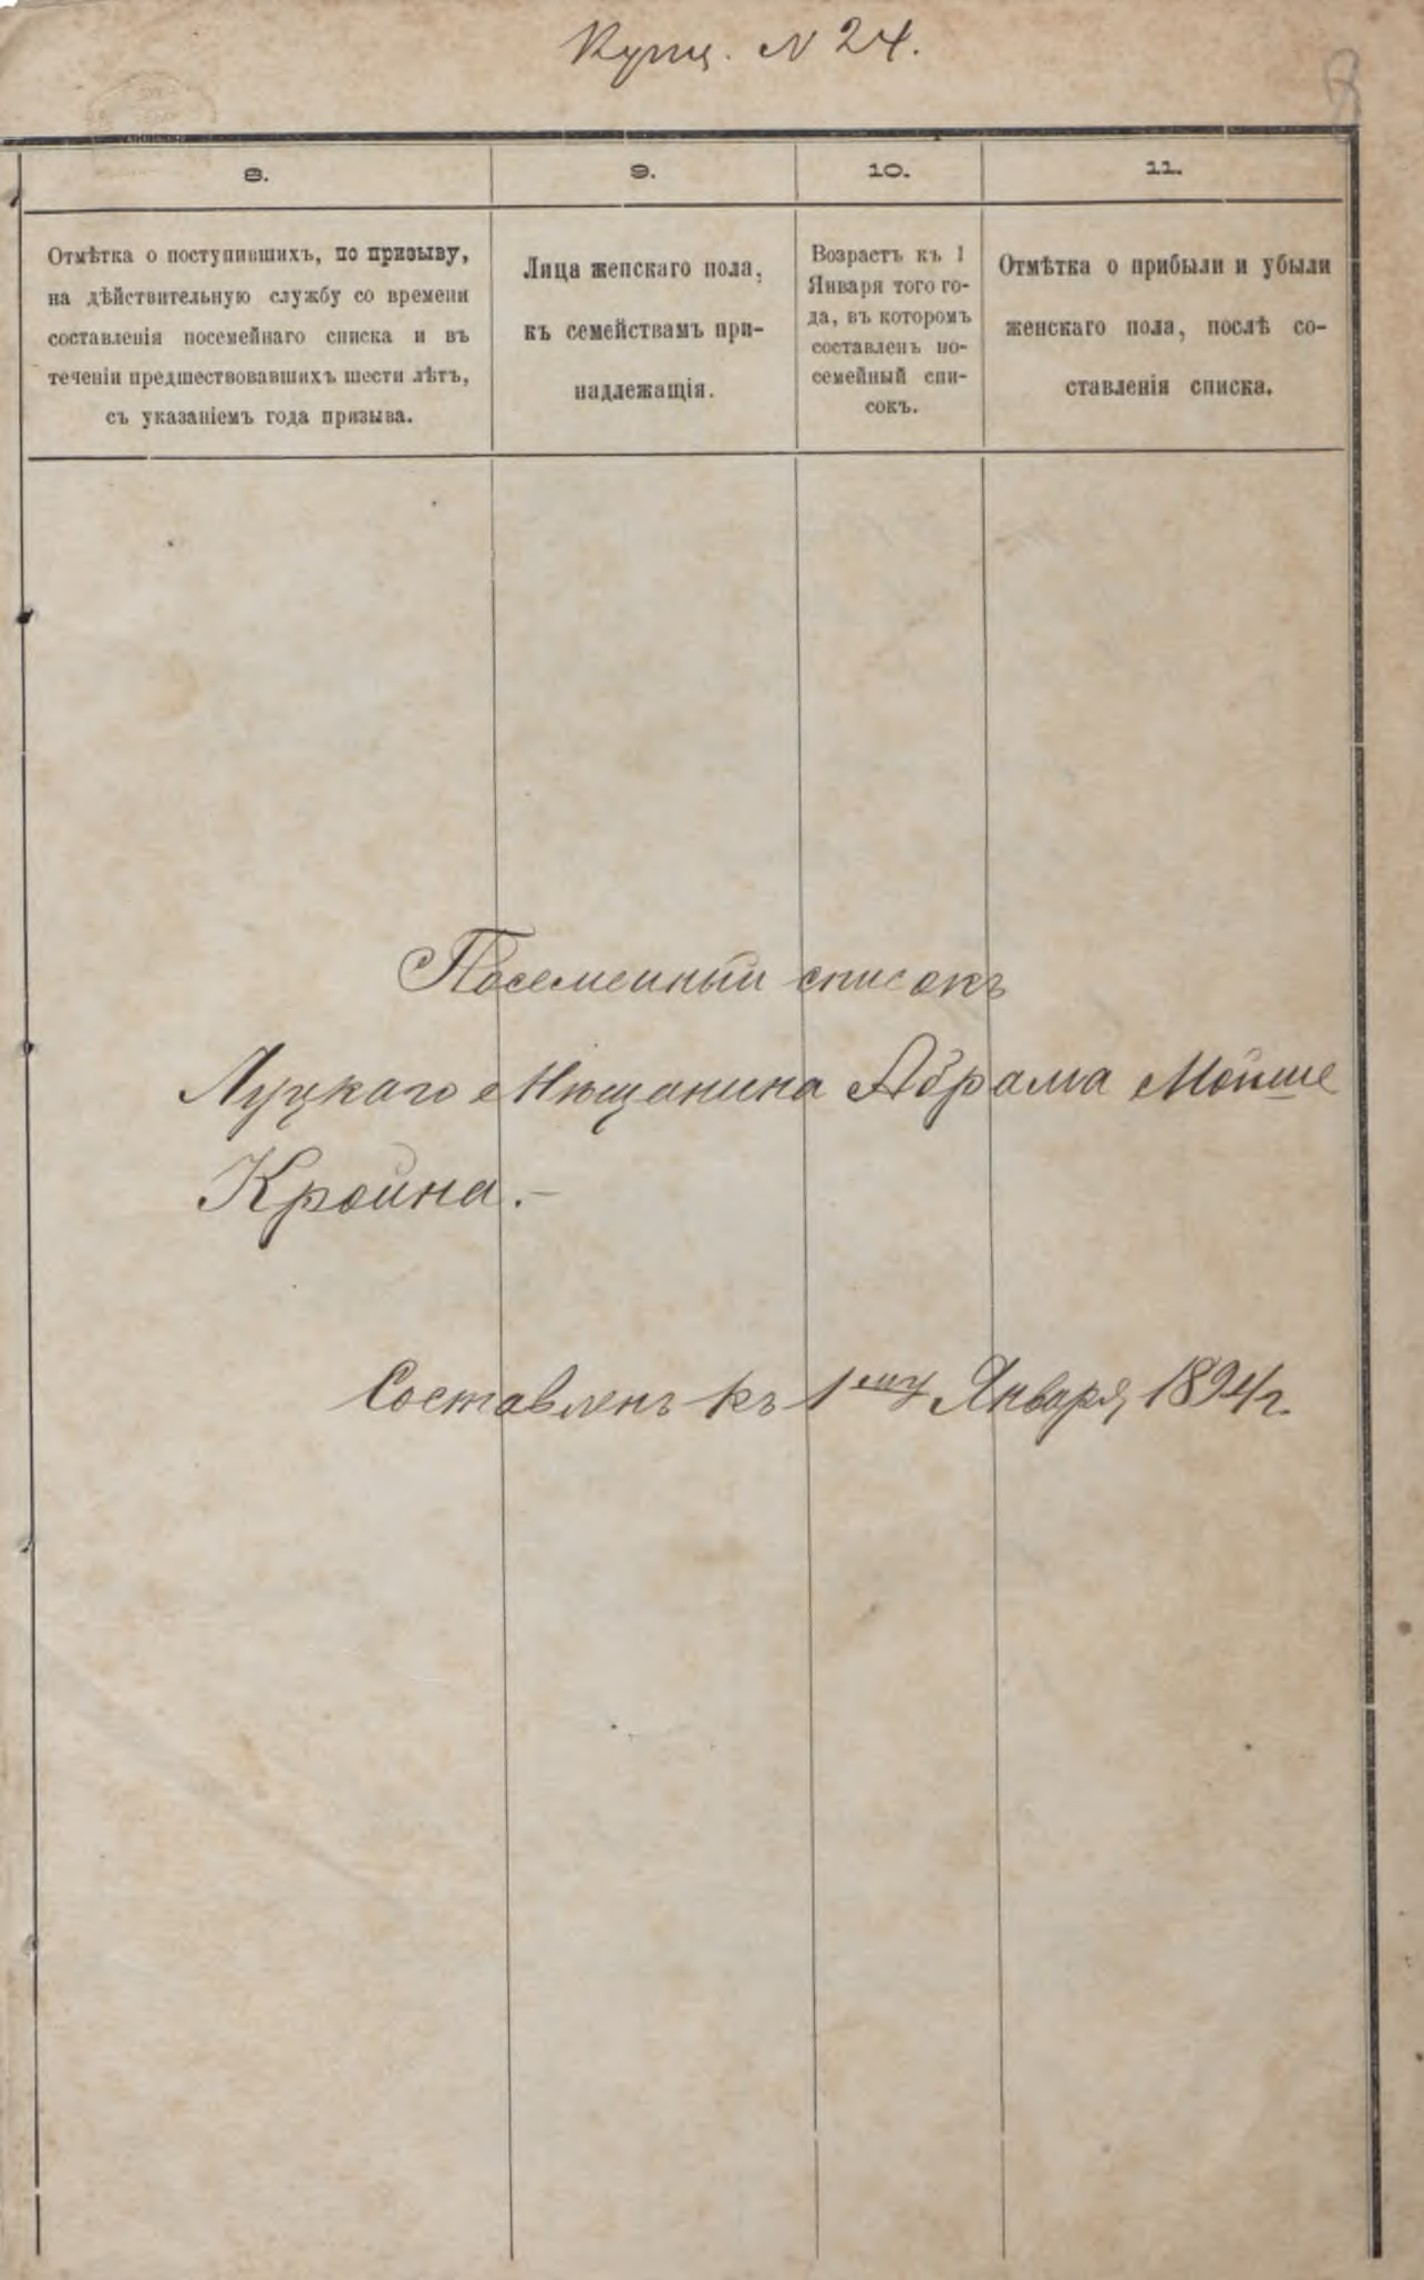 Купц. N 24.
8.
9.
10.
11.
Отмѣтка о поступившихъ, по призыву,
на дѣйствительную службу со времени
составленія посемейнаго списка и въ
теченіи предшествовавшихъ шести лѣтъ,
съ указаніемъ года призыва.
Лица женскаго пола,
къ семействамъ при-
надлежащія.
Возрастъ къ 1
Января того го-
да, въ которомъ
составленъ по-
семейный спи-
сокъ.
Отмѣтка о прибыли и убыли
женскаго пола, послѣ со-
ставленія списка.
Посемейный списокъ
Луцкаго Мѣщанина Абрама Мойше
Кройна.–
Составленъ къ 1ему Января 1894 г.